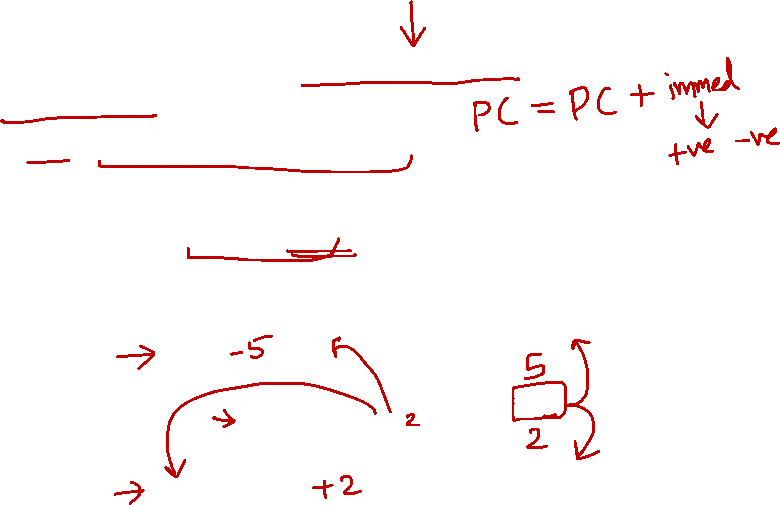 PC = PC + immed
+ve -ve
-5
5
2
2
+2